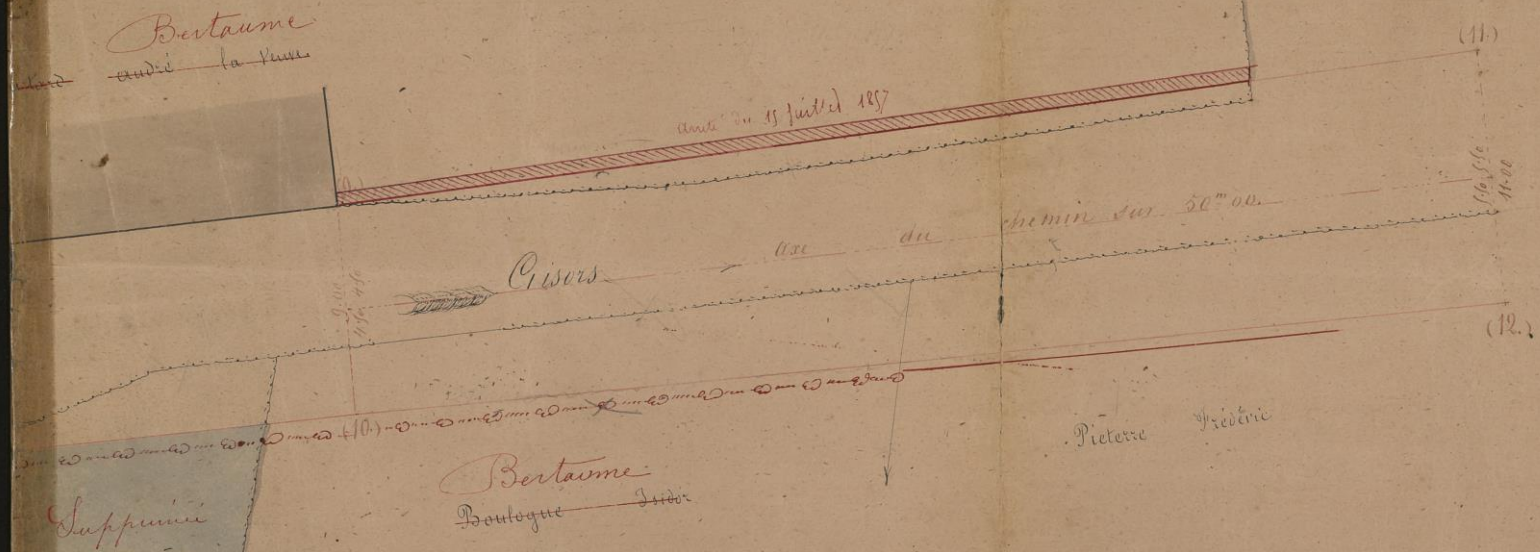 Bertaume
andré la Veuve
(11.)
arrêté du 15 Juillet 1857
(9.)
5.50 5.50
11.00
axe du chemin sur 50m00.
Gisors
9.00
4.50 4.50
(12.)
(10.)
Pieterre Frédéric
Bertaume
Boulogne Isidor
Supprimée